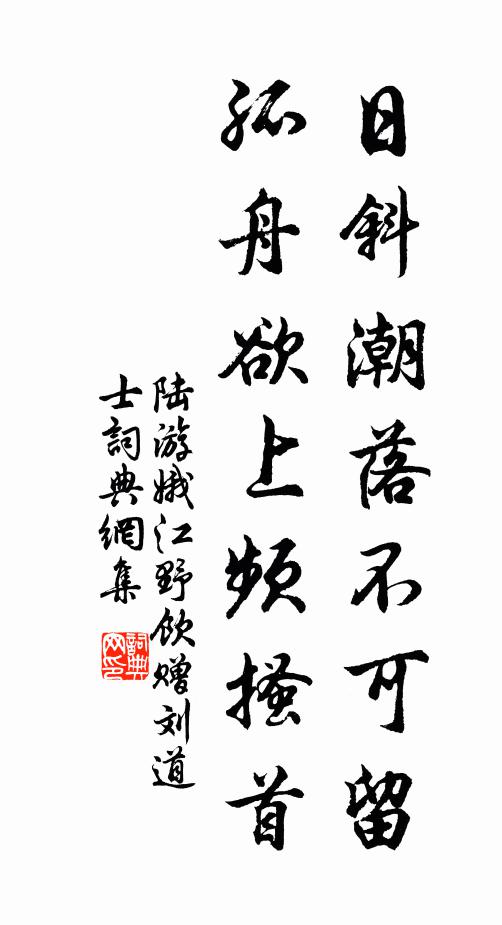 日斜潮落不可留
孤舟欲上频搔首
陆游娥江野饮赠刘道
士詞典網集
詞典网印